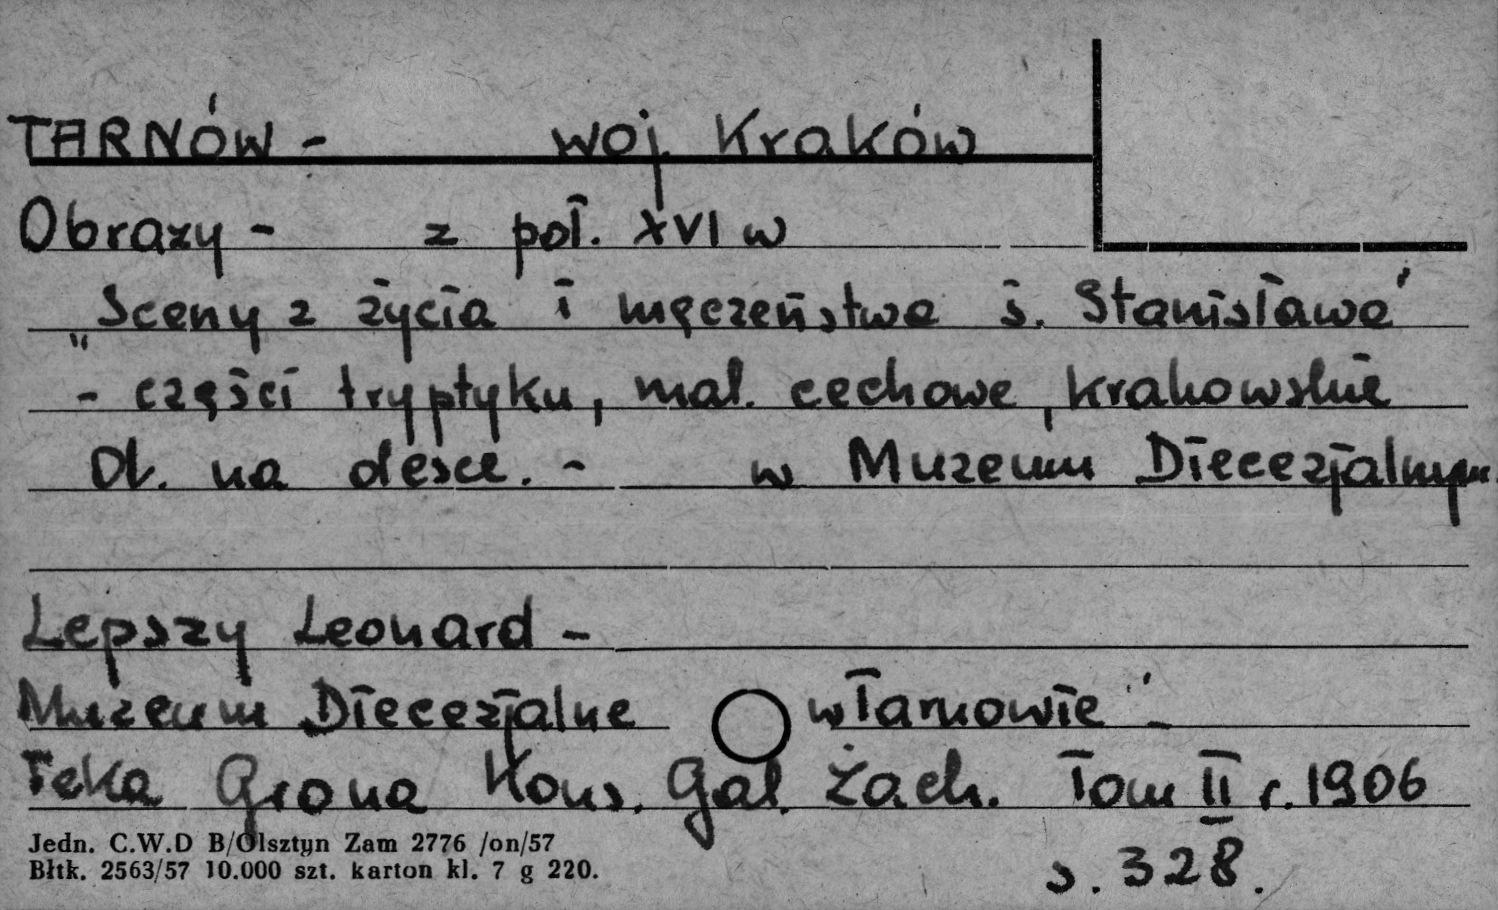 TARNÓW - woj. Kraków
Obrazy - z poł. XVI w
„Sceny z życia i męczeństwa ś. Stanisława"
- części tryptyku, mal. cechowe, krakowskie
Ob. na desce. - w Muzeum Diecezjalnym.
Lepszy Leonard -
Muzeum Diecezjalne w Tarnowie" -
Teka Grona Kons. Gal. Zach. Tom II r. 1906
s. 328.
Jedn. C.W.D B/Olsztyn Zam 2776 /on/57
Błtk. 2563/57 10.000 szt. karton kl. 7 g 220.